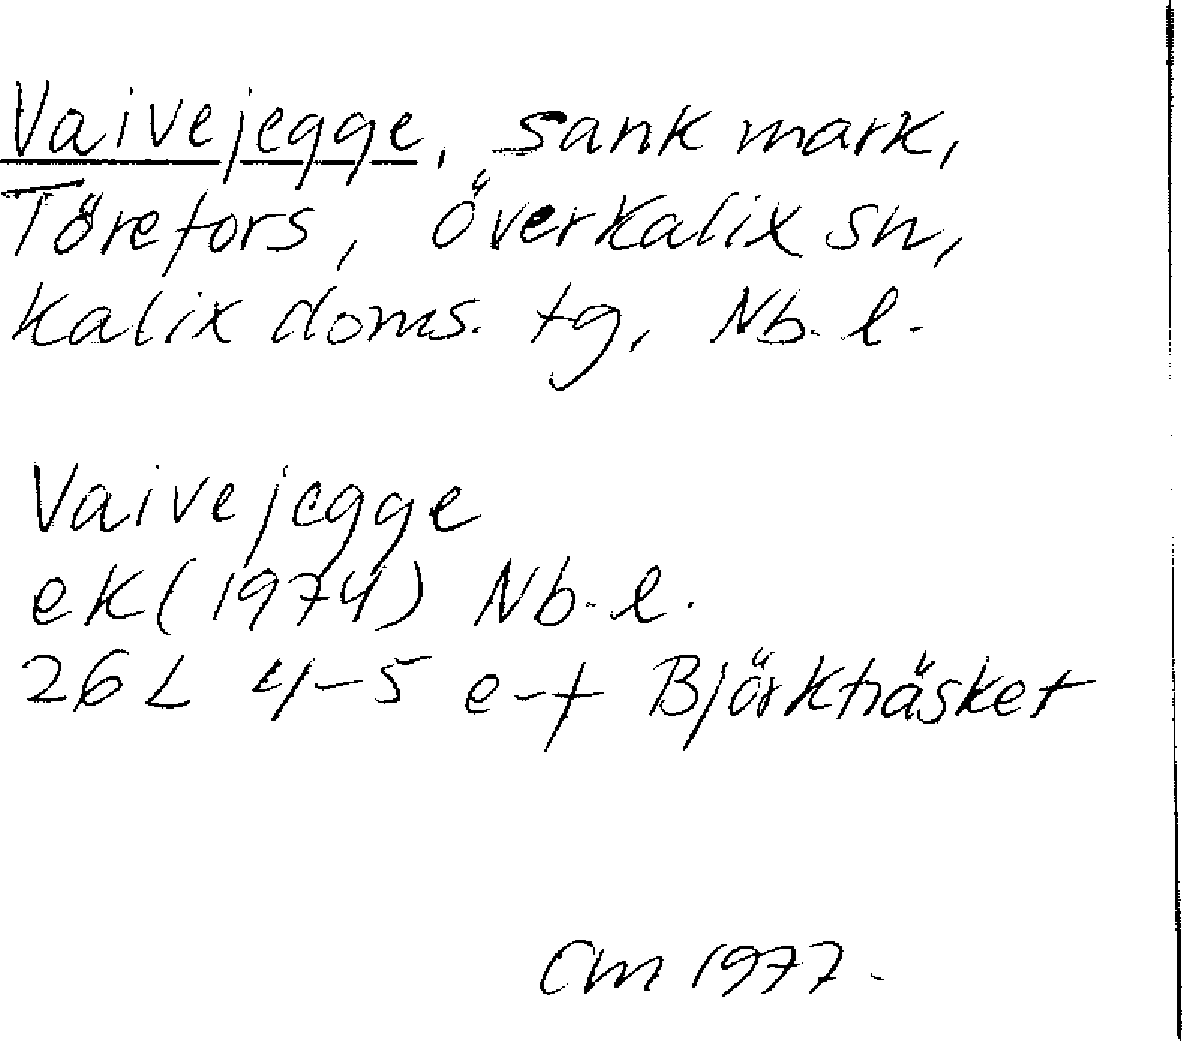 Vaivejegge, sank mark,
Törefors, överkalix sn,
Kalix doms. tg, Nb. l.
Vaivejegge
ek (1974) Nb. l.
26 L 4-5 e-f Björkträsket
Cm 1977.